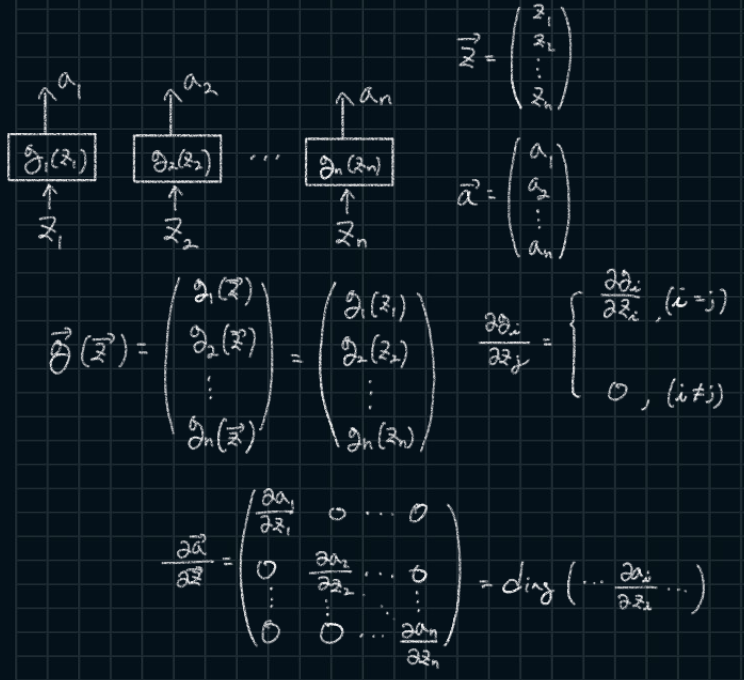 a₁ a₂ aₙ
g₁(z₁) g₂(z₂) ... gₙ(zₙ)
z₁ z₂ zₙ
z⃗ = (z₁ z₂ ⋮ zₙ)
a⃗ = (a₁ a₂ ⋮ aₙ)
g⃗(z⃗) = (g₁(z⃗) g₂(z⃗) ⋮ gₙ(z⃗)) = (g₁(z₁) g₂(z₂) ⋮ gₙ(zₙ))
∂gᵢ/∂zⱼ = { ∂gᵢ/∂zᵢ , (i=j)
0 , (i≠j)
∂a⃗/∂z⃗ = (∂a₁/∂z₁ 0 ... 0
0 ∂a₂/∂z₂ ... 0
⋮ ⋮ ⋱ ⋮
0 0 ... ∂aₙ/∂zₙ) = diag(... ∂aᵢ/∂zᵢ ...)